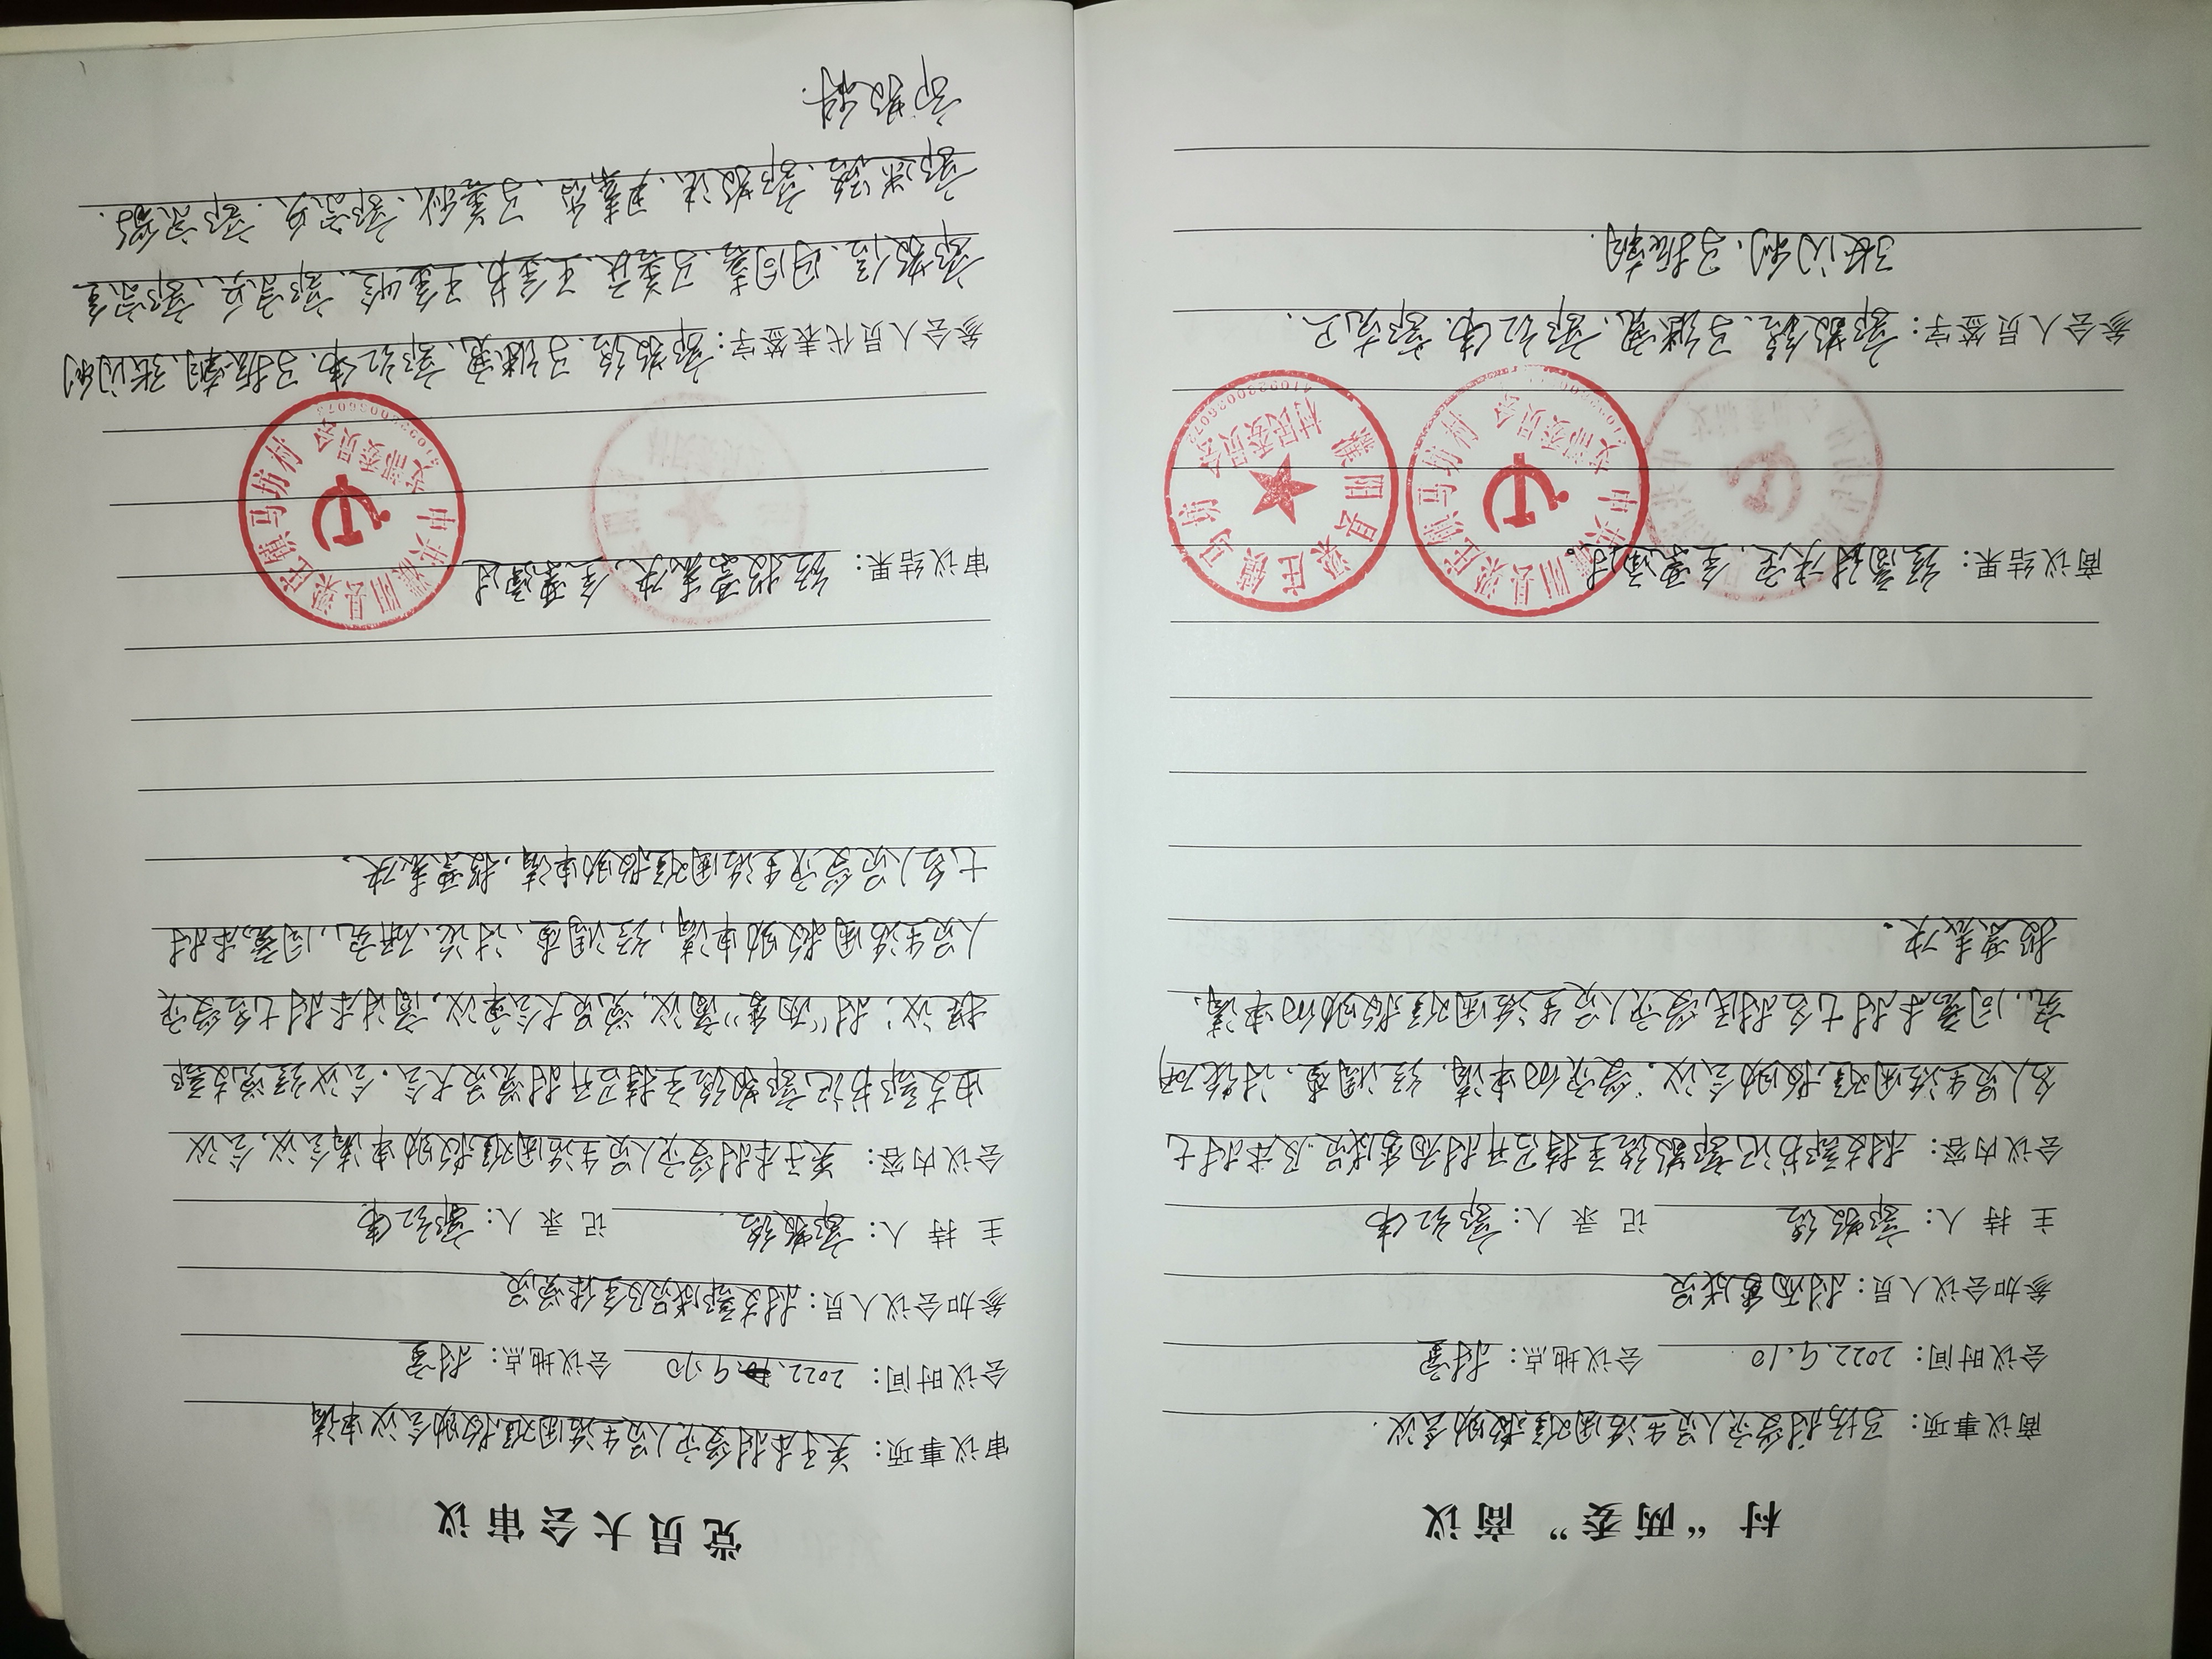 村“两委”商议
商议事项：马坊村受灾人员生活困难救助会议.
会议时间：2022.9.10 会议地点：村室
参加会议人员：村两委成员
主 持 人：郭敬铭 记 录 人：郭红伟
会议内容：村支部书记郭敬铭主持召开村两委成员及本村七
名人员生活困难救助会议。受灾的申请，经调查、讨论研
究，同意本村七名村民受灾人员生活困难救助的申请、
投票表决。
商议结果：经商讨决定，全票通过。
中共濮阳县梁庄镇马坊村
支部委员会
濮阳县梁庄镇马坊
村民委员会
4109280036072
参会人员签字：郭敬铭、马继宽、郭红伟、郭克卫、
张闪利、马振朝.
党员大会审议
审议事项：关于本村受灾人员生活困难救助会议申请
会议时间：2022、9、10 会议地点：村室
参加会议人员：村支部成员及全体党员
主 持 人：郭敬铭. 记 录 人：郭红伟
会议内容：关于本村受灾人员生活困难救助申请会议，会议
由支部书记郭敬铭主持召开村党员大会.会议经党支部
提议；村“两委”商议，党员大会审议，商讨本村七名受灾
人员生活困救助申请，经调查、讨论、研究，同意本村
七名人员受灾生活困难救助申请，投票表决。
审议结果：经投票表决，全票通过
中共濮阳县梁庄镇马坊村
支部委员会
参会人员代表签字：郭敬铭、马继宽、郭红伟、马振朝、张闪利
郭敬信、丹同喜、马善庆、王金书、王金岭、郭宗兵、郭宗全
郭迷路、郭敬法、尹素香、马善秋、郭宗兵.郭宗
郭敬科.